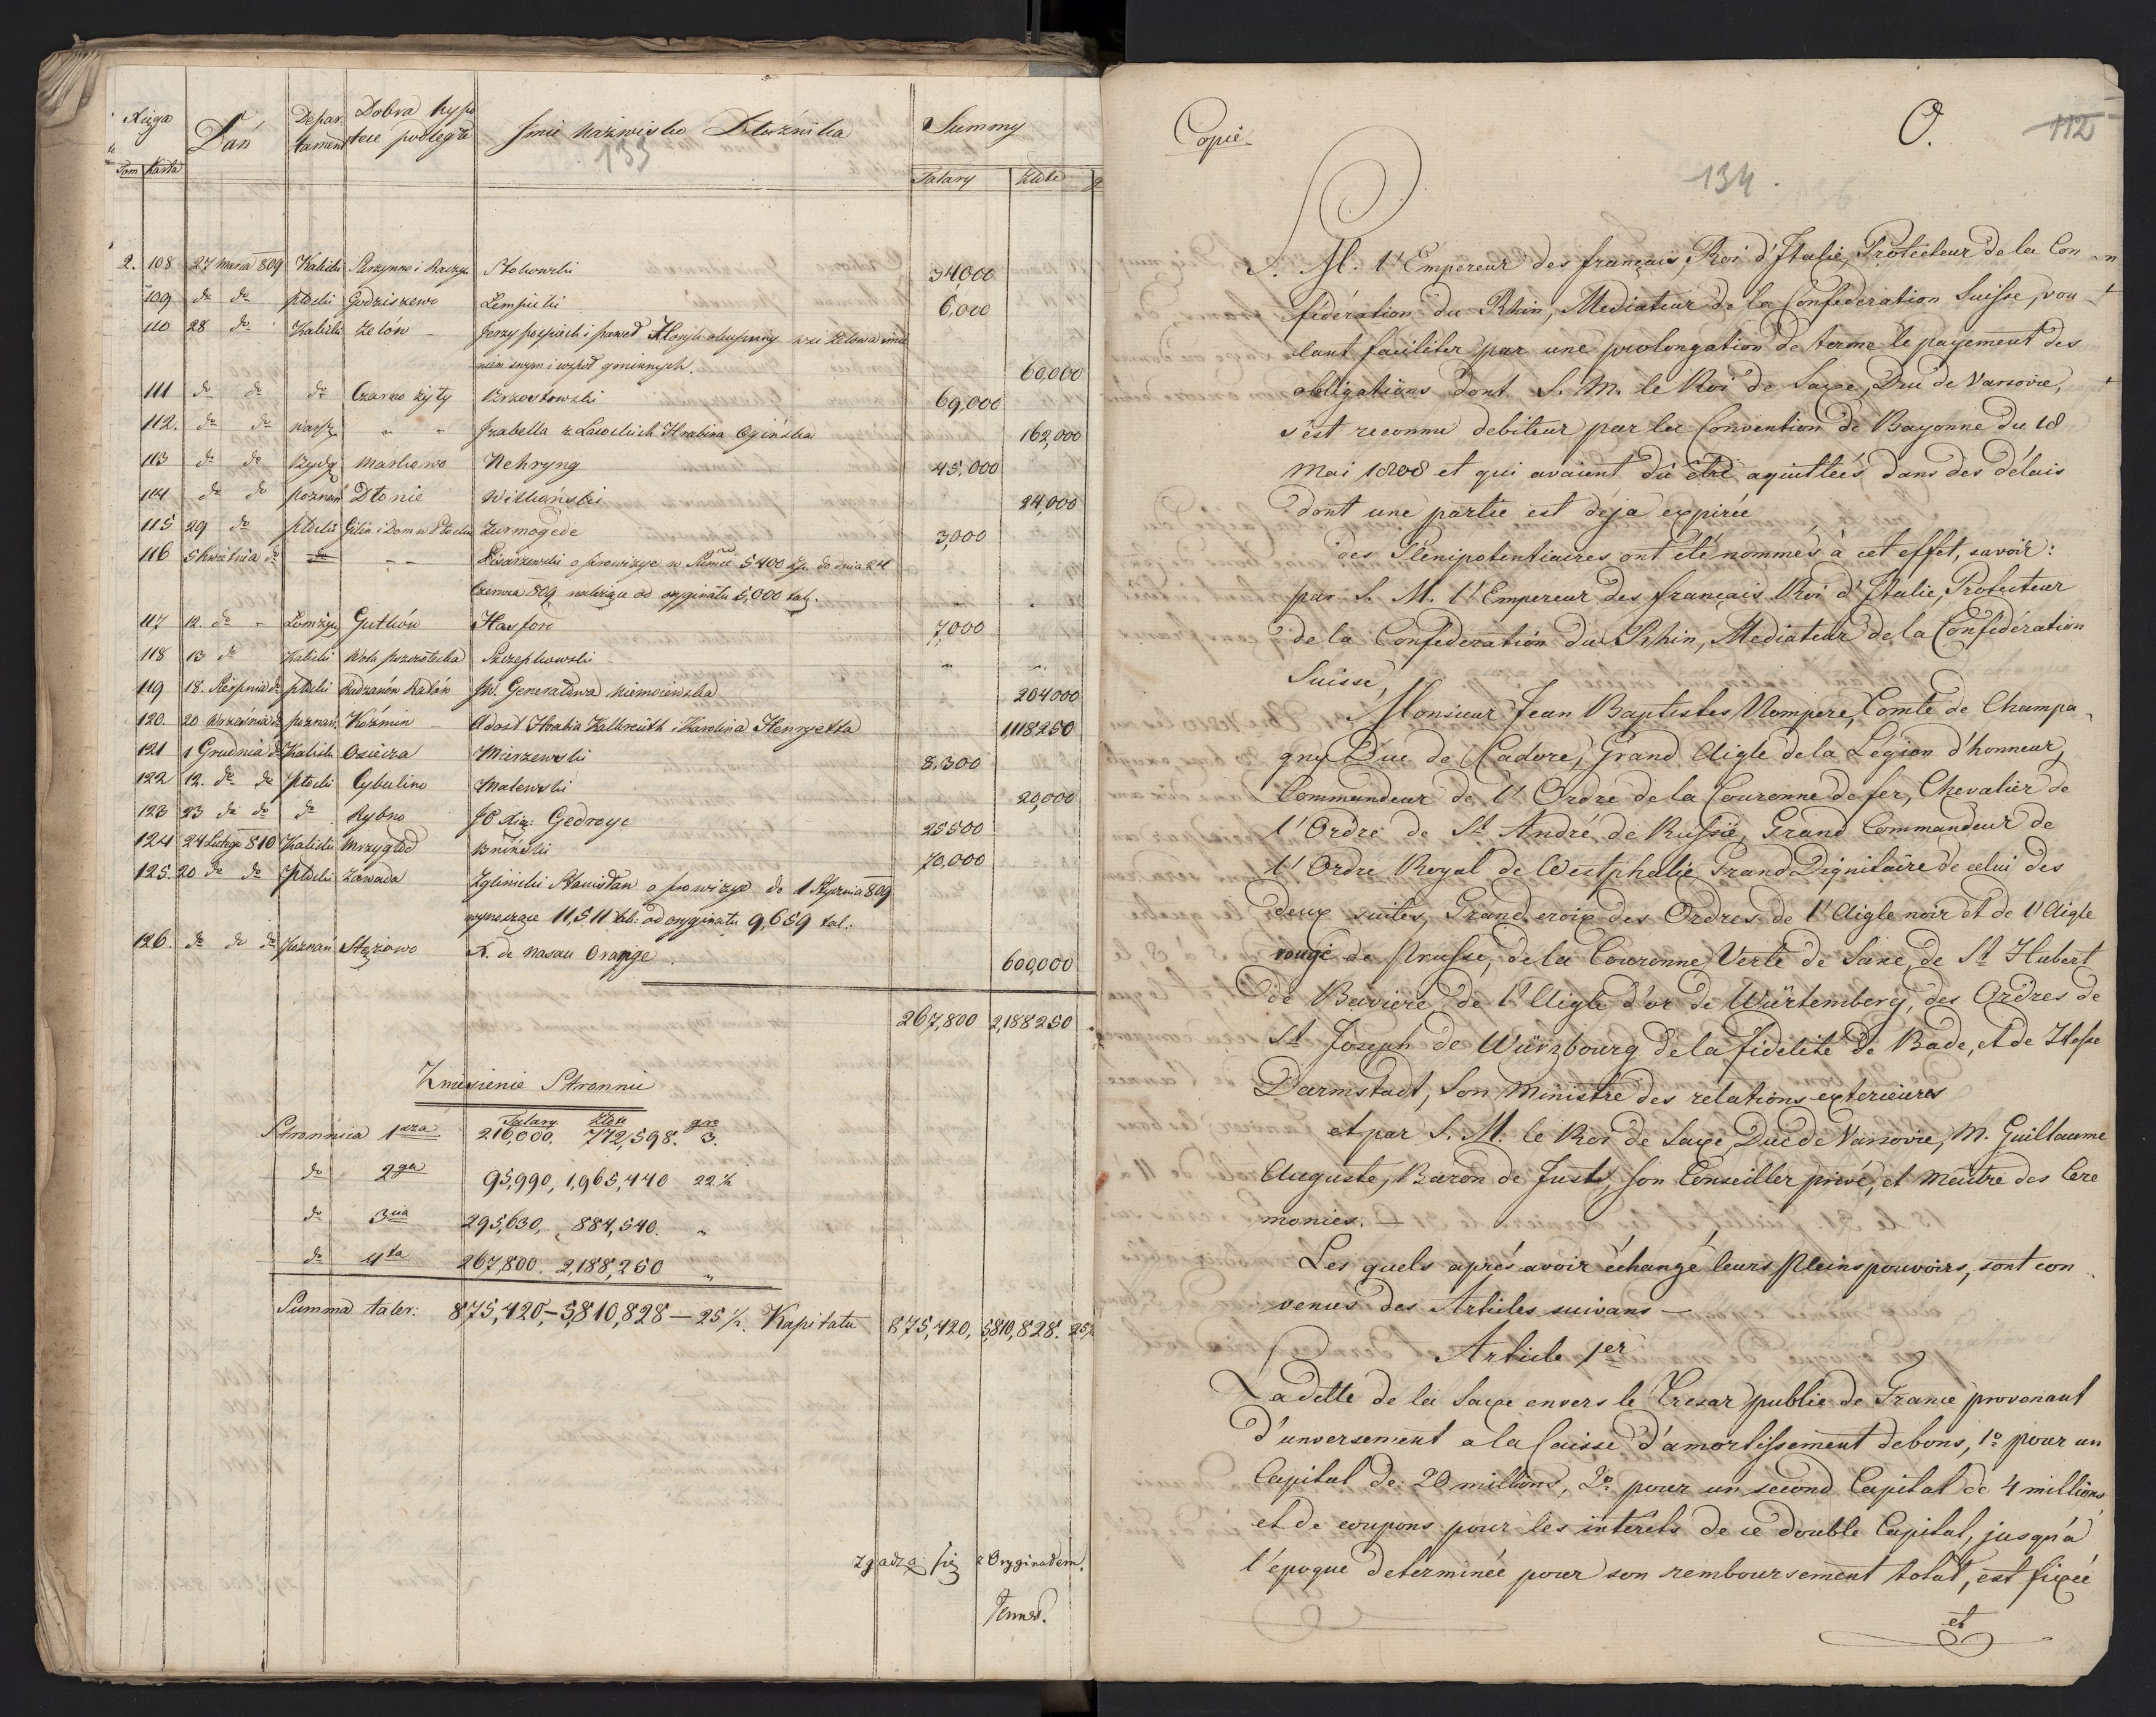 Księga Dań Depar- Dobra hypo- Imie Nazwisko Dłużnika Summy
tament tece podległe
133
Tom Karta Talary Złote gr
2. 108 27 Marca 809 Kaliski Skrzynno i Raczyn Stokowski 34000
109 do do płocki Godziszewo Lempicki 6,000
110 28 do Kaliski Zelów Jerzy pospiech i paweł
niem swym i współ gminnych. 60,000
111 do do do Czarno żyły Brzostowski 69,000
112. do do warsz „ „ Izabella z Lasockich Hrabina Ogińska 162,000
113 do do Bydg Markowo Nehryng 45,000
114 do do poznań Dłonie Wilkoński 24,000
115 29 do płocki Gilin i Dom w Płocku Zurmogede 3,000
116 5 Kwietnia do do „ „ Pisarzewski o prowizye w Sumie 5400 zp. do dnia 24
Czerwca 809 należące od oryginału 5,000 tal.
117 12. do „ Łomżyn Gutków Hayford 7,000
118 13 do Kaliski Wola pszczołecka Szczepkowski „ „
119 18. Sierpnia do płocki Radzanów Ratów JW. Generałowa Niemoiewska 204000
120. 20 Września do poznań. Koźmin Adolf Hrabia Kalkreuth i Karolina Henryetta 1,118250
121 1 Grudnia do Kaliski Osiecza Mierzewski 8,300
122 12. do do płocki Cybulino Malewski 20,000
123 23 do do do Rybno JO Xię: Gedroyc 25500
124 24 Lutego 810 Kaliski Mrzygłod Bniński 70,000
125. 20 do do płocki Zawada Zglinicki Stanisław o prowizye do 1 Stycznia 809
wynoszące 11,511 tal: od oryginału 9,659 tal.
126. do do do Poznań Stęzewo X. de Nassau Orange 600,000
267,800 2,188250
Zniesienie Stronnic
Talary Złote gro
Stronnica 1sza 216,000. 772,598. 3.
do 2ga 95,990, 1,965,440 22 ½
do 3cia 295,630, 884,540. „
do 4ta 267,800. 2,188,250 „
Summa talar: 875,420,- 5,810,828 — 25 ½. Kapitału 875,420, 5,810,828. 25½
zgadza się z Oryginałem.
Copie
O.
112
134.
S. M. l'Empereur des français, Roi d'Italie, Protecteur de la Con-
fédération du Rhin, Mediateur de la Confederation Suisse, vou-
lant faciliter par une prolongation de terme le payement des
obligations dont S. M. le Roi de Saxe, Duc de Varsovie,
s'est reconnu debiteur par la Convention de Bayonne du 10
Mai 1808 et qui avaient dû être aquittées dans des délais
dont une partie est déja expirée
des Plenipotentiaires ont été nommés à cet effet, savoir:
par S. M. l'Empereur des français Roi d'Italie, Protecteur
de la Confederation du Rhin, Mediateur de la Confédération
Suisse,
Monsieur Jean Baptistes Nompere, Comte de Champa-
gny Duc de Cadore, Grand Aigle de la Légion d'honneur,
Commandeur de l'Ordre de la Couronne de fer, Chevalier de
l'Ordre de St André de Russie, Grand Commandeur de
l'Ordre Royal de Westphalie, Grand Dignitaire de celui des
deux siciles, Grand croix des Ordres de l'Aigle noir et de l'Aigle
rouge de Prusse, de la Couronne Verte de Saxe, de St Hubert
de Baviere, de l'Aigle d'or de Würtemberg, des Ordres de
St Joseph de Würzbourg, de la fidelité de Bade, et de Hesse
Darmstadt, Son Ministre des relations exterieures
et par S. M. le Roi de Saxe, Duc de Varsovie, M. Guillaume
Auguste, Baron de Just, son Conseiller privé, et Maitre des Cere
monies. —
Les quels après avoir échangé leurs Pleinspouvoirs, sont con-
venus des Articles suivans —
Article 1er
La dette de la Saxe envers le Tresor public de France provenant
d'unversement a la Caisse d'amortissement de bons, 1o pour un
Capital de 20 millions, 2o pour un second Capital de 4 millions,
et de coupons pour les intérêts de ce double Capital, jusqu'à
l'epoque determinée pour son remboursement total, est fixée
et